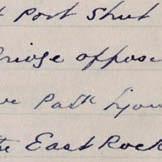 Post Shut
Bridge oppose
Path Lyon
the East Rock